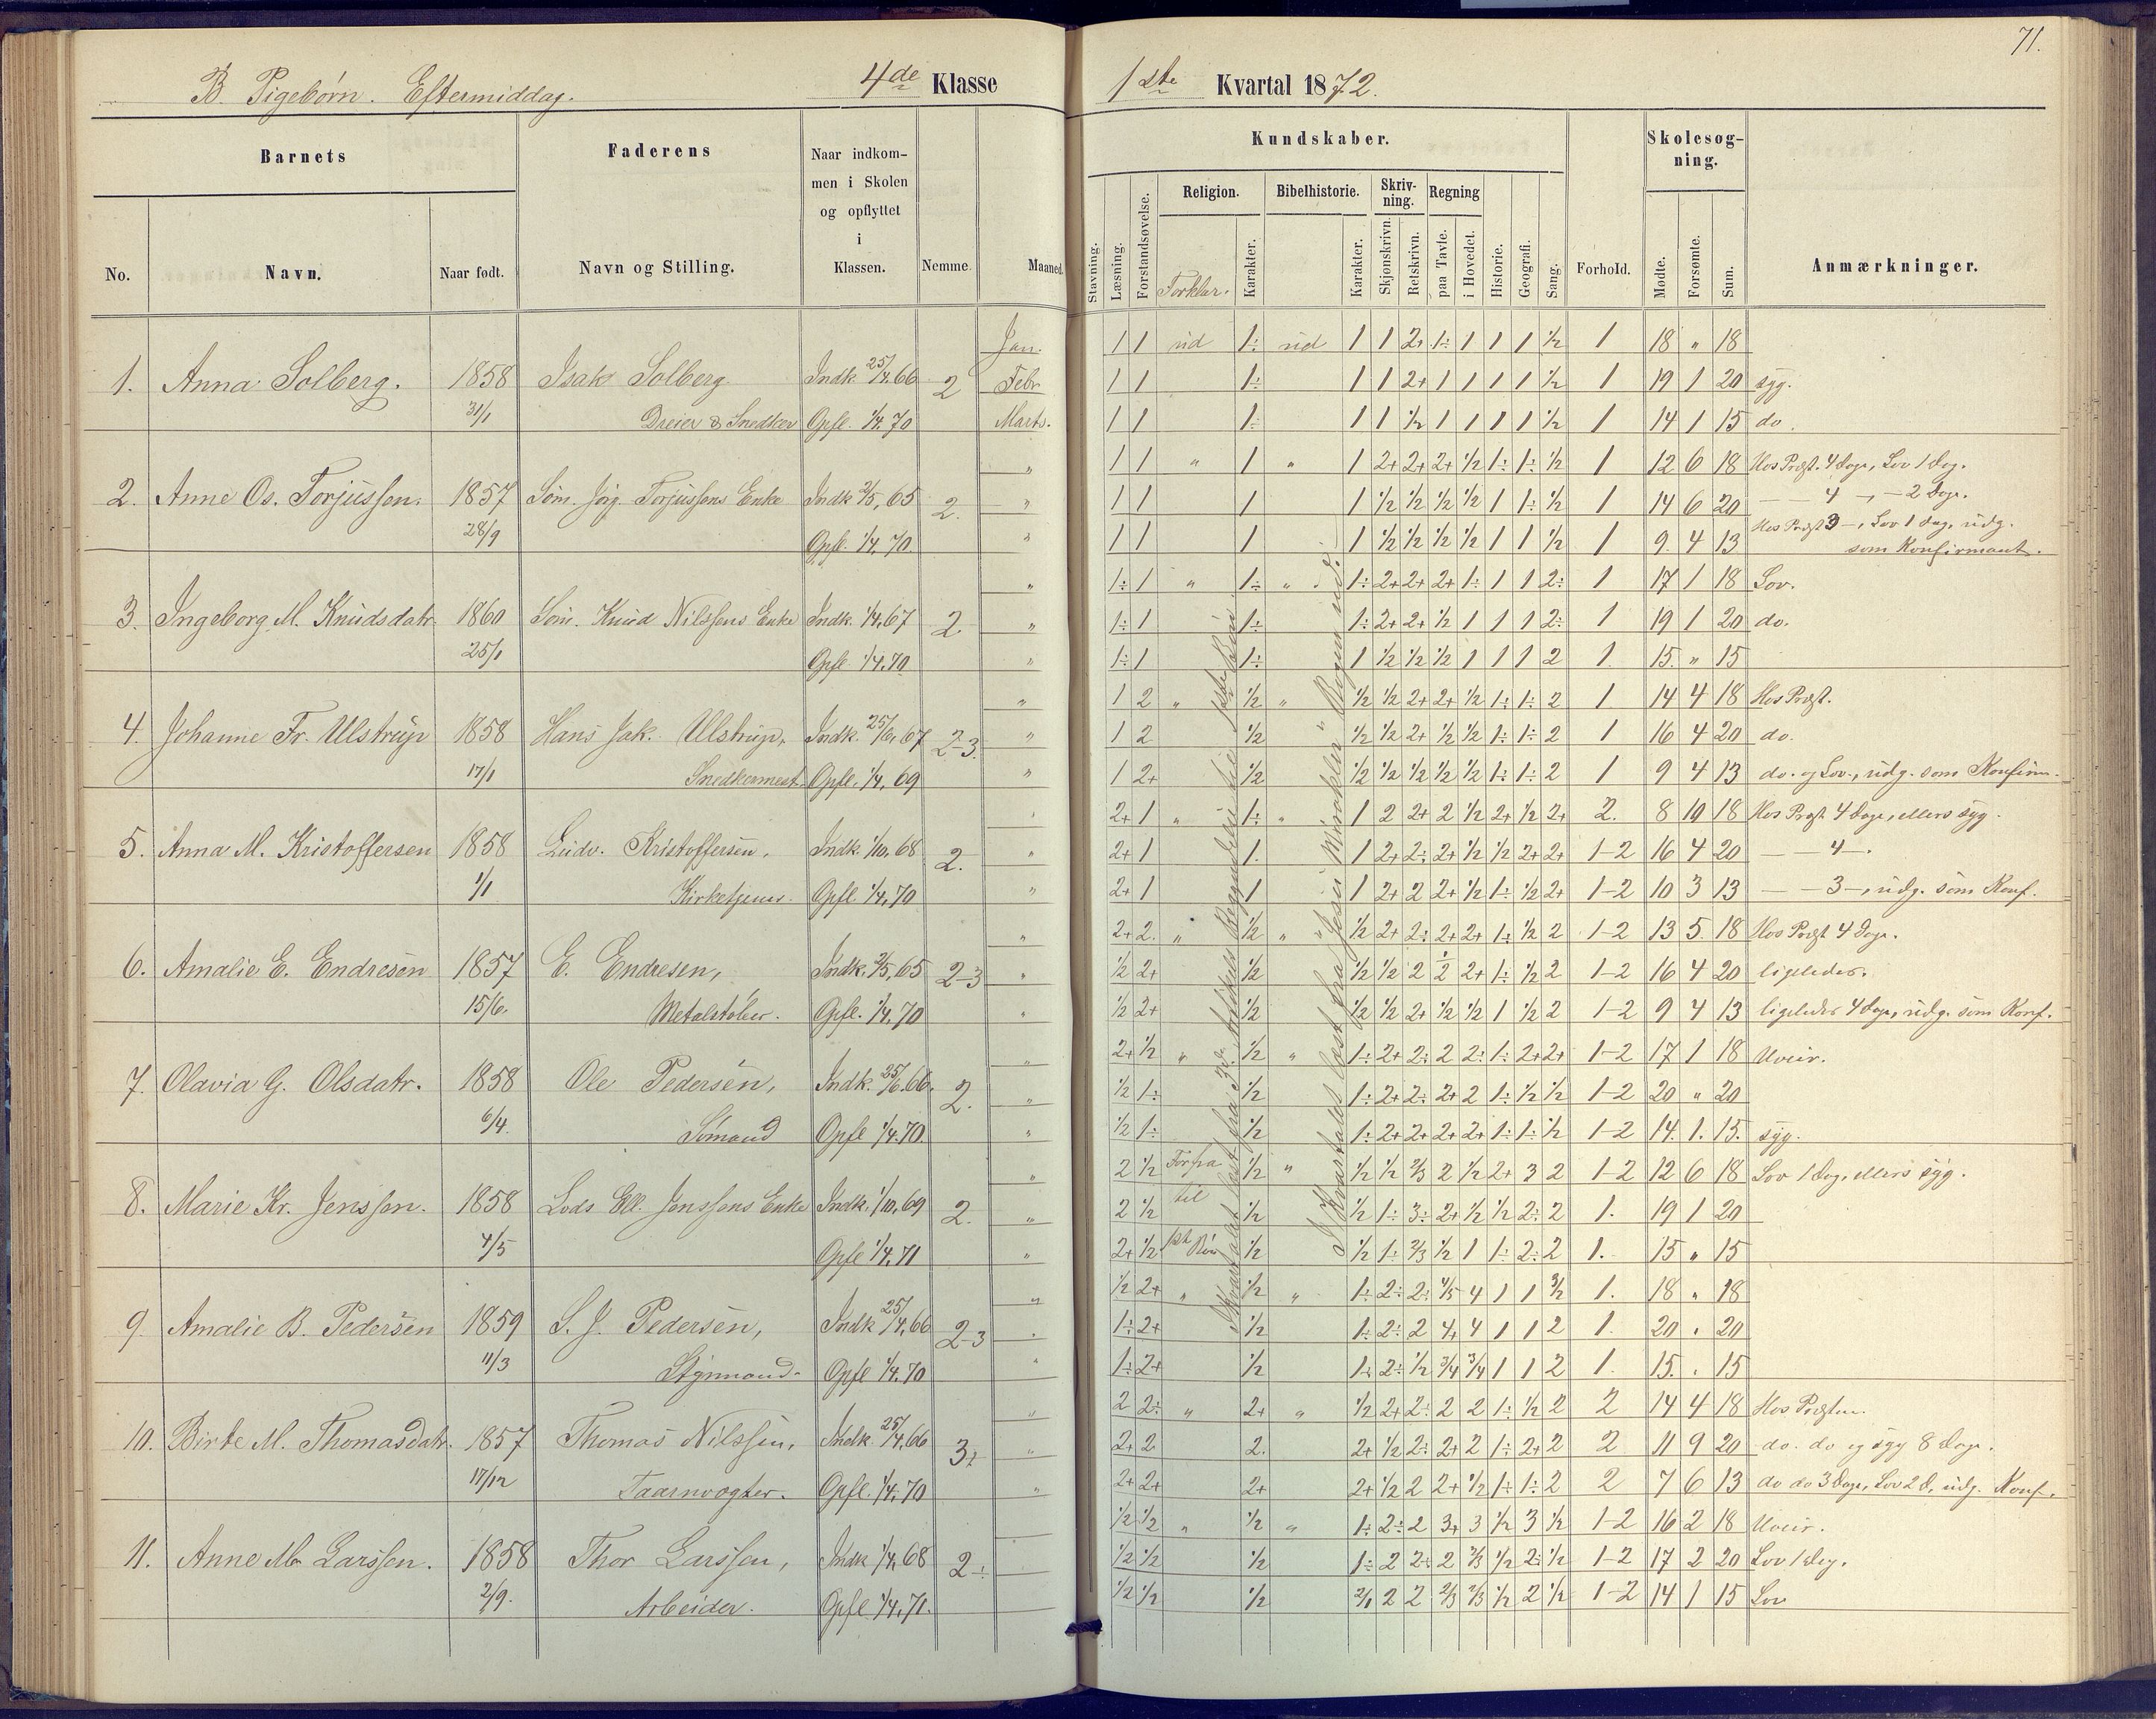 71.
B. Pigebørn. Eftermiddag. 4de Klasse
1ste Kvartal 1872.
Barnets Faderens Naar indkommen i Skolen og opflyttet i Klassen. Nemme. Maaned.
No. Navn. Naar født. Navn og Stilling.
Kundskaber. Forhold. Skolesøgning. Anmærkninger.
Stavning. Læsning. Forstandsøvelse. Religion. Forklar. Karakter. Bibelhistorie. Karakter. Skrivning. Skjønskrivn. Retskrivn. Regning paa Tavle. i Hovedet. Historie. Geografi. Sang. Mødte. Forsømte. Sum.
1. Anna Solberg. 1858 31/1 Isak Solberg Dreier & Snedker Indk. 25/4.66 Opfl. 1/4.70 2
Jan. 1 1 ud 1÷ ud 1 1 2+ 1÷ 1 1 1 ½ 1 18 " 18
Febr 1 1 1÷ 1 1 2+ 1 1 1 1 ½ 1 19 1 20 syg.
Marts. 1 1 1÷ 1 1 ½ 1 1 1 1 ½ 1 14 1 15 do.
2. Anne Os. Torjussen. 1857 28/9 Søm. Jørg. Torjussens Enke Indk 2/5.65 Opfl. 1/4.70. 2.
" 1 1 " 1 " 1 2+ 2+ 2+ ½ 1÷ 1÷ ½ 1 12 6 18 Hos Præst. 4 Dage, Lov 1 Dag.
" 1 1 1 1 ½ ½ ½ ½ 1 1÷ ½ 1 14 6 20 — — 4 —, — 2 Dage.
" 1 1 1 1 ½ ½ ½ ½ 1 1 ½ 1 9. 4 13 Hos Præst 3 —, Lov 1 Dag, udg.
som Konfirmant.
3. Ingeborg M. Knudsdatr. 1860 25/1 Søm. Knud Nilssens Enke Indk. 1/4.67 Opfl 1/4.70 2.
" 1÷ 1 " 1÷ " 1÷ 2+ 2+ 2+ 1÷ 1 1 2÷ 1 17 1 18 Lov.
" 1÷ 1 1÷ 1÷ 2+ 2+ ½ 1 1 1 2÷ 1 19 1 20 do.
" 1÷ 1 1÷ 1 ½ ½ ½ 1 1 1 2 1. 15. " 15
4. Johanne Fr. Ulstrup 1858 17/1 Hans Jak. Ulstrup, Snedkermest. Indk. 25/6.67 Opfl. 1/4.69 2-3.
" 1 2 " ½ " ½ ½ 2+ 2+ ½ 1÷ 1÷ 2 1 14 4 18 Hos Præst.
" 1 2 ½ ½ ½ 2+ ½ ½ 1÷ 1÷ 2 1 16 4 20 do.
" 1 2+ ½ ½ ½ ½ ½ ½ 1÷ 1÷ 2 1 9 4 13 do. og Lov., udg. som Konfirm.
5. Anna M. Kristoffersen 1858 1/1 Ludv. Kristoffersen, Kirketjener. Indk. 1/10.68 Opfl 1/4.70 2.
" 2+ 1 " 1÷ " 1 2 2+ 2 ½ 2+ ½ 2+ 2. 8 10 18 Hos Præst 4 Dage, ellers syg.
" 2+ 1 1. 1 2+ 2÷ 2+ ½ ½ 2+ 2+ 1-2 16 4 20 — — 4 —.
" 2+ 1 1 1 2+ 2 2+ ½ 1÷ ½ 2+ 1-2 10 3 13 — — 3 —, udg. som Konf.
6. Amalie E. Endresen 1857 15/6. E. Endresen, Metalstøber. Indk. 2/5.65 Opfl. 1/4.70 2-3
" 2+ 2. " ½ " ½ 2+ 2÷ 2+ 2+ 1÷ ½ 2 1-2 13 5. 18 Hos Præst 4 Dage.
" ½ 2+ ½ ½ ½ 2 ½ 2+ 1÷ ½ 2 1-2 16 4 20 ligeledes.
" ½ 2+ ½ ½ ½ 2+ ½ ½ 1 ½ 2 1-2 9 4 13 ligeledes 4 Dage, udg. som Konf.
7. Olavia G. Olsdatr. 1858 6/4. Ole Pedersen, Sømand Indk. 25/6.66. Opfl 1/4.70. 2.
" 2+ ½ " ½ " 1÷ 2+ 2÷ 2 2÷ 1÷ 2+ 2+ 1-2 17 1 18 Uveir.
" ½ 1÷ ½ 1÷ 2+ 2÷ 2+ 2 1÷ ½ ½ 1-2 20 " 20
" ½ 1÷ ½ 1÷ 2+ 2+ 2+ 2+ 1÷ 1÷ ½ 1-2 14. 1. 15. syg.
8. Marie Kr. Jenssen. 1858 4/5 Lods Ell. Jenssens Enke Indk. 1/10.69 Opfl 1/4.71 2.
" 2 ½ Forfra ½ " ½ ½ 2/3 2 ½ 2+ 3 2 1-2 12 6 18 Lov 1 Dag, ellers syg.
" 2 ½ til ½ ½ 1÷ 3÷ 2+ ½ ½ 2÷ 2 1. 19 1 20
" 2+ ½ ½ ½ 1÷ 2/3 ½ 1 1÷ 2÷ 2 1. 15 " 15
9. Amalie B. Pedersen 1859 11/3 S. J. Pedersen, Styrmand. Indk 25/4.66 Opfl 1/4.70 2-3
" ½ 2+ " ½ " 1÷ 2÷ 2÷ 4/5 4 1 1 3/2 1. 18 " 18
" 1÷ 2+ ½ 1÷ 2÷ 2 4+ 4 1 1 2 1. 20 " 20
" 1÷ 2+ ½ 1÷ 2÷ ½ 3/4 3/4 1 1 2 1. 15. " 15
10. Birte M. Thomasdatr. 1857 17/12 Thomas Nilssen, Taarnvogter. Indk. 25/4.66 Opfl. 1/4.70 3+
" 2 2÷ " 2+ " ½ 2+ 2÷ 2 2 1÷ ½ 2 2 14 4 18 Hos Præsten.
" 2+ 2 2. 2+ ½ 2÷ 2+ 2 1÷ 2+ 2 2 11 9 20 do. do og syg 8 Dage.
" 2+ 2+ 2+ 2+ ½ 2 2+ ½ 1÷ 1÷ 2 2 7 6 13 do do 3 Dage, Lov 2 D, udg. Konf.
11. Anne M. Larssen. 1858 2/9. Thor Larssen, Arbeider. Indk 1/4.68 Opfl 1/4.71. 2÷
½ ½ " ½ " 1÷ 2÷ 2 3+ 3 ½ 3 ½ 1-2 16 2 18 Uveir.
½ ½ ½ 1÷ 2 2÷ 2 2/3 ½ 2÷ ½ 1-2 17 2 20 Lov 1 Dag.
½ ½ ½ 2/1 2 2 2/3 2/3 ½ 2 ½ 1-2 14 1 15 Lov
I Kvartalet læst fra
I Kvartalet læst fra "Jesu Mirakler"